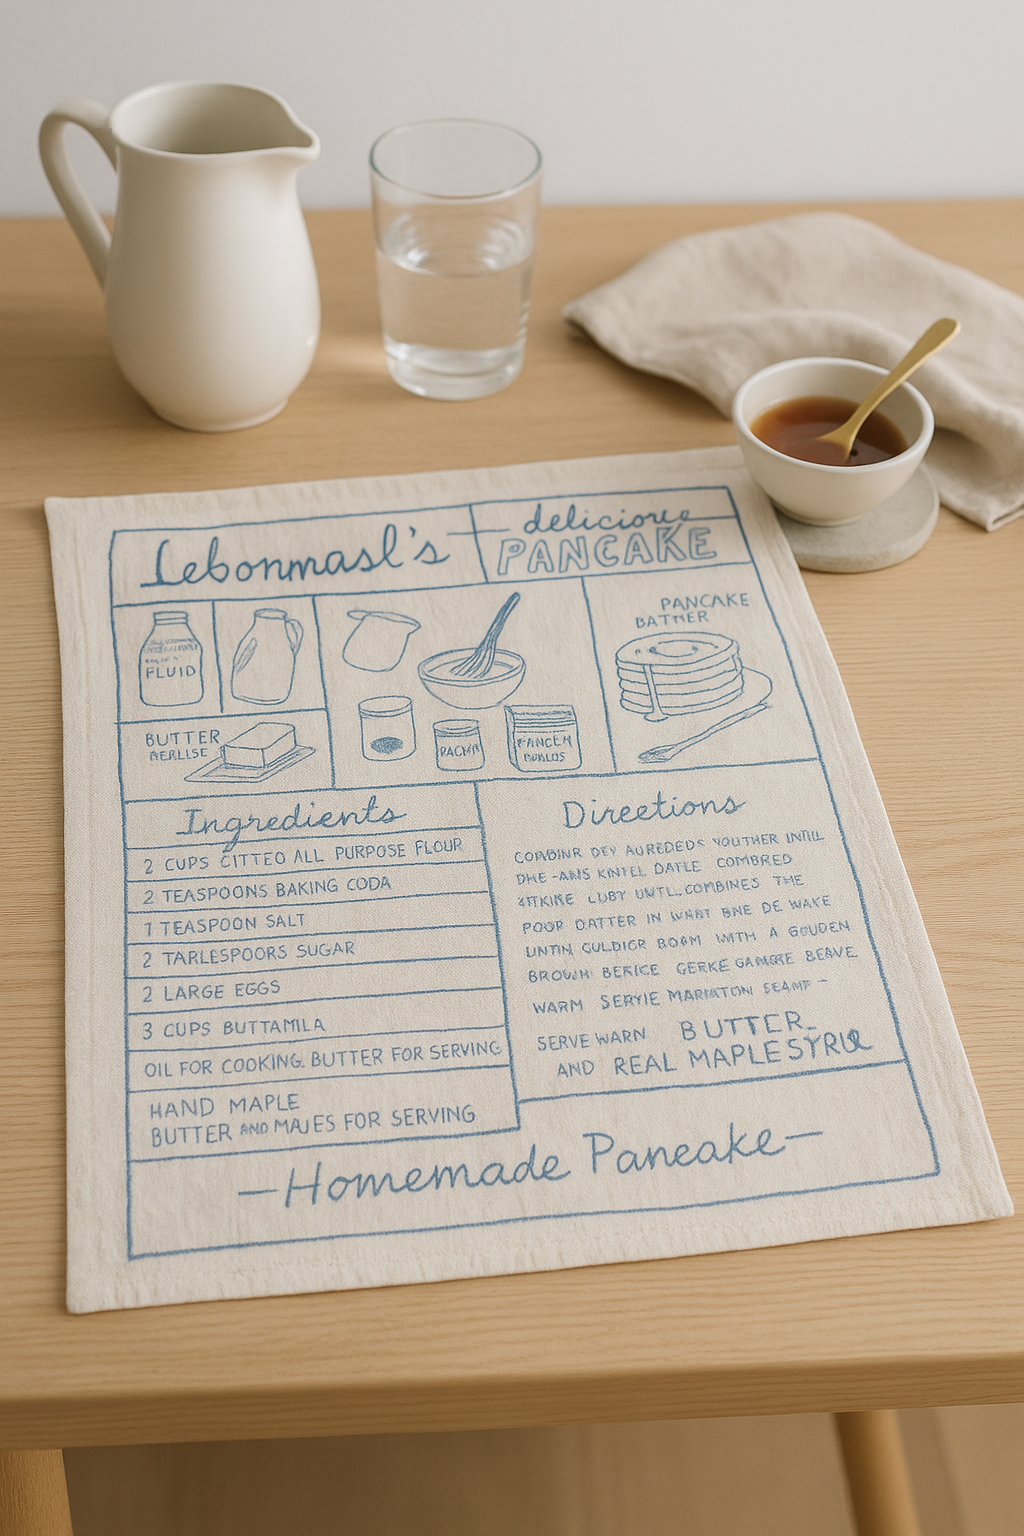 Lebonmasl's
delicioue
PANCAKE
FLUID
BUTTER
PANCAKE
BATHER
Ingredients
2 CUPS CITTEO ALL PURPOSE FLOUR
2 TEASPOONS BAKING CODA
1 TEASPOON SALT
2 TARLESPOORS SUGAR
2 LARGE EGGS
3 CUPS BUTTAMILA
OIL FOR COOKING. BUTTER FOR SERVING
HAND MAPLE
BUTTER AND MAJES FOR SERVING
Directions
COMBINR DEY AUREDEDS YOUTHER INTILL
DHE-ANS KNTEL DATLE COMBRED
LUBY UNTL..COMBINES THE
POOP DATTER IN WHAT BNE DE WAKE
UNTIN GULDIGR BOAM WITH A GOUDEN
BROWN BERICE GERKE GAMSRE BEAVE
WARM SERYIE MARIATON SEAMF –
SERVE WARN BUTTER
AND REAL MAPLE
—Homemade Paneake—